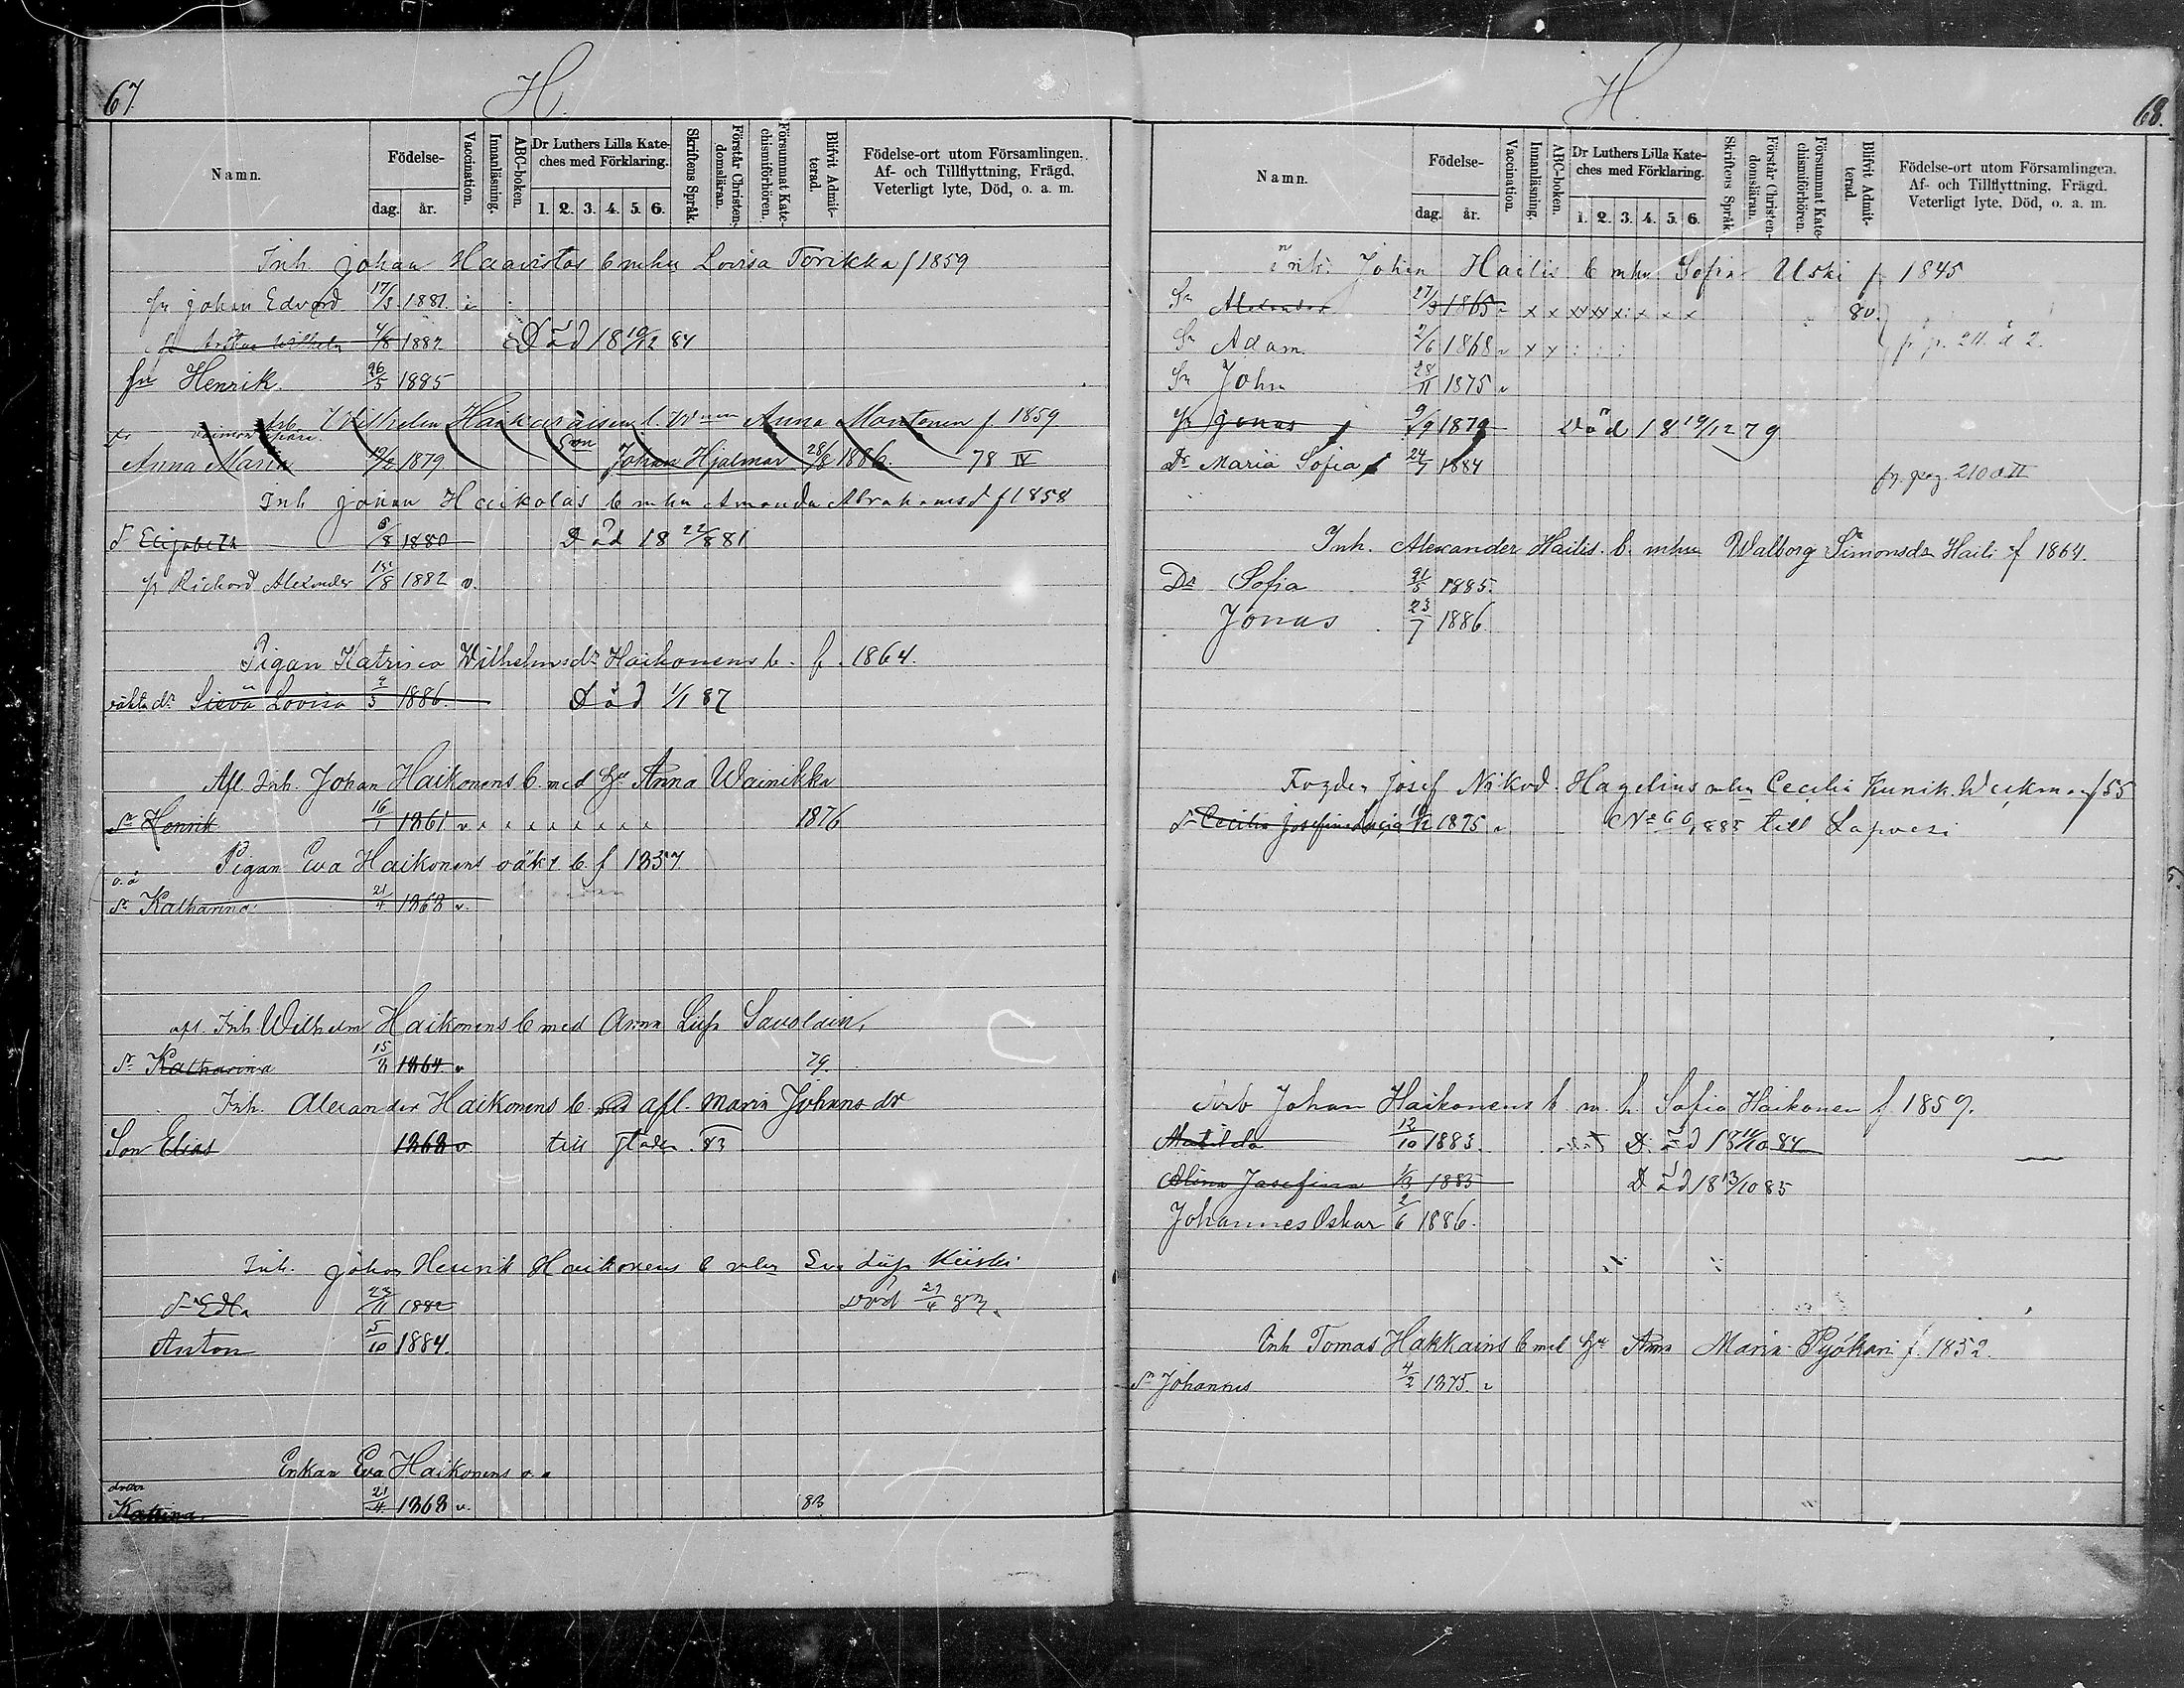 67.
H.
Namn.
Födelse-
dag.
år.
Vaccination.
Innanläsning.
ABC-boken.
Dr Luthers Lilla Kate-
ches med Förklaring.
1. 2. 3. 4. 5. 6.
Skriftens Språk.
Förstår Christen-
domsläran.
Försummat Kate-
chismiförhören.
Blifvit Admit-
terad.
Födelse-ort utom Församlingen.
Af- och Tillflyttning, Frägd,
Veterligt lyte, Död, o. a. m.
Inh. Johan Haavistos b mhu Lovisa Torikka f 1859
Johan Edvard 17/3 1881.
Arthur Wilhelm 4/8 1882 Död 18 10/12 84
Henrik. 26/5 1885
Arb. Wilhelm Anna Montonen f 1859
Anna Maria 1879 Son Johan Hjalmar 28/8 1886. 78 IV
Inh Johan Haikolas b mhu Amanda Abrahamsd f 1858
Elisabeth 8/8 1880 Död 18 22/8 81
Richard Alexander 15/8 1882 v.
Pigan Katrina Wilhelmsdr Haikonens b. f. 1864.
oäkta dr Lovisa 5 1886. Död 1/1 87
Afl. Inh. Johan Haikonens b. med Anna Wainikka
Sr Henrik 16/1 1861 v x x x x x x x x 1876
Pigan Eva Haikonens oäkt b f 1837
o. ä
dr Katharina 21/4 1868 v.
afl. Inh Wilhelm Haikonens b med Anna Lisa Savolain.
dr Katharina 15/8 1864 v 79.
Inh. Alexander Haikonens b afl. Maria Johans dr
Son Elias 1868 v till staden 83
Inh. Johan Henrik Haikonens b mhu Eva Kiiski
Edla 1882 död 83.
Anton 5/10 1884.
Enkan Eva Haikonens
Katrina 21/4 1868 v. 83
H
68.
Namn.
Födelse-
dag.
år.
Vaccination.
Innanläsning.
ABC-boken.
Dr Luthers Lilla Kate-
ches med Förklaring.
1. 2. 3. 4. 5. 6.
Skriftens Språk.
Förstår Christen-
domsläran.
Försummat Kate-
chismiförhören.
Blifvit Admit-
terad.
Födelse-ort utom Församlingen.
Af- och Tillflyttning, Frägd.
Veterligt lyte, Död, o. a. m.
Inh. Johan Hailis b mhu Sofia Uski f. 1845
Sn Alexander 27/3 1865 80.
Sn Adam. 2/6 1868 p. 211. 2.
Sn Johan 28/11 1875 v
Jonas 9/9 1879 Död 18 19/12 79
Dr Maria Sofia 24/7 1884
pag. 210 II
Inh. Alexander Hailis b. mhu Walborg Simonsdr Haili f 1864.
Dr Sofia 21/5 1885.
Jonas 23/7 1886.
Fogden Josef Nikod. Hagelius mhu Cecilia Weckman f 55
Cecilia Josefina 1875 v No 66 1885 till Lapvesi
Arb Johan Haikonens b m. h. Sofia Haikonen f 1859.
Matilda 12/10 1883. Död 18 11/10 84
Alina Josefina 1/3 1883 Död 18 13/10 85
Johannes Oskar 2/6 1886.
Inh Tomas Hakkains b med Anna Maria Pyökäri f. 1852.
Sn Johannes 4/2 1875. v